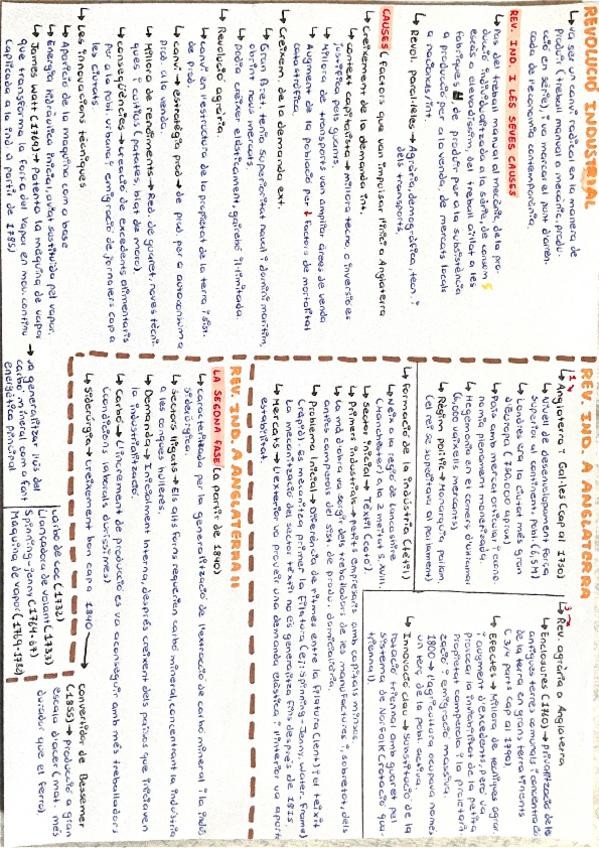 REVOLUCIÓ INDUSTRIAL
↳ Va ser un canvi radical en la manera de
produir (treball manual a mecànic, produ-
cció en sèrie), i va marcar el punt d'arren-
cada de l'economia contemporània.
REV. IND. I LES SEVES CAUSES
↳ Pas del treball manual al mecànic, de la pro-
ducció individualitzada a la sèrie, de consum
escàs a elevadíssim, del treball aïllat a les
fàbriques, de produir per a la subsistència
a producció per a la venda, de mercats locals
a nacionals/int.
↳ Revol. paral·leles → Agrària, demogràfica, tecn. i
dels transports.
CAUSES (Factors que van impulsar l'inici a Anglaterra
↳ Creixement de la demanda int.
↳ context capitalista → millora tecno o inversió es
justifica pels guanys.
↳ Millora de transports van ampliar àrees de venda
↳ Augment de la població per ↓ factors de mortalitat
catastròfica
↳ Creixem de la demanda ext.
↳ Gran Bret. tenia superioritat naval i domini marítim,
obrint nous mercats.
↳ Podia créixer elàsticament, gairebé il·limitada.
↳ Revolució agrària
↳ canvi en estructura de la propietat de la terra i sist.
de prod.
↳ canvi → estratègia prod → de prod per a autoconsum a
prod. a la venda.
↳ Millora de rendiments → Red. de guaret, noves tècni-
ques i cultius (patates, blat de moro).
↳ conseqüències → creació de excedents alimentaris
per a la pobl. urbana i emigració de jornalers cap a
les ciutats
↳ Les innovacions tècniques
↳ Aparició de la màquina com a base
↳ Energia hidràulica inicial, aviat substituïda pel vapor.
↳ James Watt (1769) → Patenta la màquina de vapor
que transforma la força del vapor en mov. continu
(aplicada a la ind. a partir de 1785)
↳ va generalitzar l'ús del
carbó mineral com a font
energètica principal
REV. IND. A ANGLATERRA
↳ Anglaterra i Gal·les (cap al 1750)
↳ Nivell de desenvolupament força
superior al continent, Pobl. (6,5M)
↳ Londres era la ciutat més gran
d'Europa (750.000 aprox)
↳ País amb mercat unificat i econo-
nomia plenament monetitzada.
↳ Hegemonia en el comerç d'ultramar
(6.000 vaixells mercants)
↳ Règim polític → Monarquia parlam.
(el rei se supeditava al parlament)
↳ Rev. agrària Anglaterra
↳ Enclosures (1760) → privatització de
antigues terres comunals i concentració
de la terra en grans terratinents
(3/4 parts cap al 1790).
↳ Efectes → Millora de tècniques agràr.
i augment d'excedents, però va
provocar la
propietat camperola i la proletarit-
zació i emigració massiva.
1800 → l'agricultura ocupava només
un terç de la pobl. activa
↳ Innovació clau → Substitució de la
rotació triennal amb guaret pel
sistema de Norfolk (rotació qua-
triennal)
↳ Formació de la indústria (tèxtil)
↳ Neix a la regió de Lancashire
(Manchester) a la 2 meitat S. XVIII.
↳ Sector inicial → Tèxtil (cotó)
↳ Primers industrials → petits empresaris amb capitals mínims.
↳ La mà d'obra va sorgir dels treballadors de les manufactures i, sobretot, dels
antics camperols del sist. de produc. domiciliària.
↳ Problema inicial → Diferència de ritmes entre la filatura (lent) i el teixit
(ràpid). Es mecanitza primer la filatura (ej: Spinning-Jenny, Water. Frame)
La mecanització del sector tèxtil no es generalitza fins després de 1815.
↳ Mercats → L'exterior va proveir una demanda elàstica, i l'interior va aportar
estabilitat.
REV. IND. A ANGLATERRA II
LA SEGONA FASE (a partir de 1840)
↳ Caracteritzada per la generalització de l'extracció de carbó mineral i la indús.
siderúrgica.
↳ Sectors lligats → Els alts forns requerien carbó mineral, concentrant la indústria
a les conques hulleres.
↳ Demanda → Inicialment interna, després creixent dels països que iniciaven
la industrialització.
↳ Carbó → L'increment de producció es va aconseguir amb més treballadors
(condicions laborals duríssimes)
↳ Siderúrgia → Creixement bon cap a 1840 → convertidor de Bessemer
(1855) → Producció a gran
escala d'acer (mat. més
durador que el ferro)
Carbó de coc (1732)
Llançadora de volant (1733)
Spinning-Jenny (1764-67)
Màquina de vapor (1769-1782)